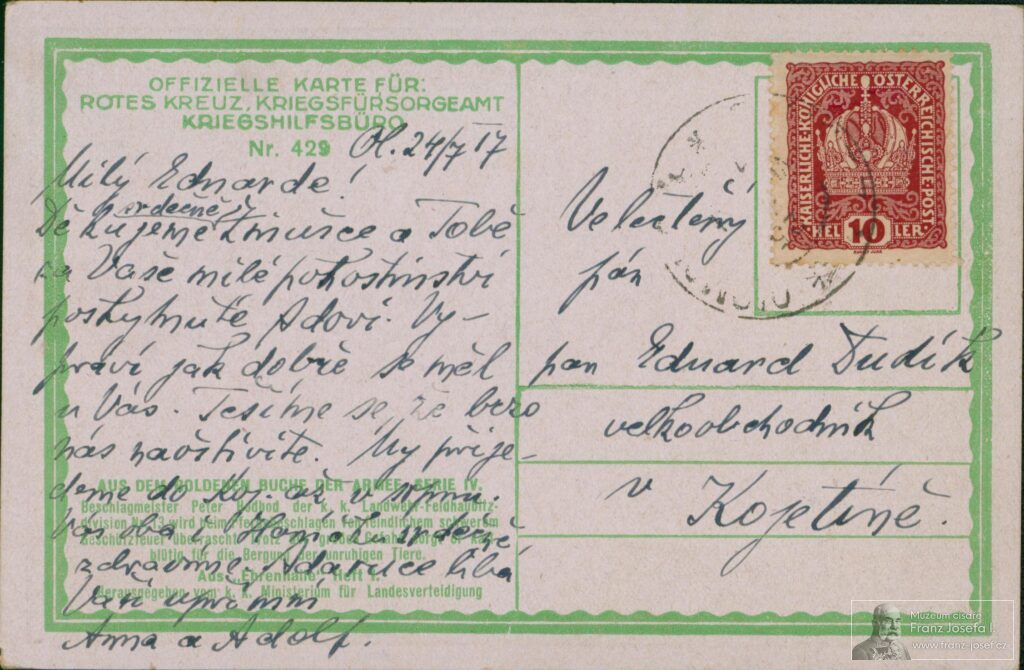 OFFIZIELLE KARTE FÜR:
ROTES KREUZ, KRIEGSFÜRSORGEAMT
KRIEGSHILFSBÜRO
Nr. 429
Ol. 24/7 17
Milý Eduarde!
srdečně
Děkujeme Zinušce a Tobě
za Vaše milé pohostinství
poskytnuté Adovi. Vy-
práví jak dobře se měl
u Vás. Těšíme se, že brzo
nás navštívíte. My přije-
deme do Koj. až v srpnu.
zdravíme. líbá
Vaši upřímní
Anna a Adolf.
AUS DEM GOLDENEN BUCHE DER ARMEE, SERIE IV.
Beschlagmeister Peter der k. k. Landwehr-Feldhaubitz-
division Nr. 13 wird beim feindlichem schwerem
Geschützfeuer überrascht
blütig für die Bergung der unruhigen Tiere.
Aus „Ehrenhalle" Heft I.
Herausgegeben vom k. k. Ministerium für Landesverteidigung
KAISERLICHE·KÖNIGLICHE·ÖSTERREICHISCHE·POST
HEL 10 LER
Velectěný
pán
pan Eduard Dudík
velkoobchodník
v
Kojetíně.
Muzeum císaře
Franz Josefa I.
www.franz-josef.cz